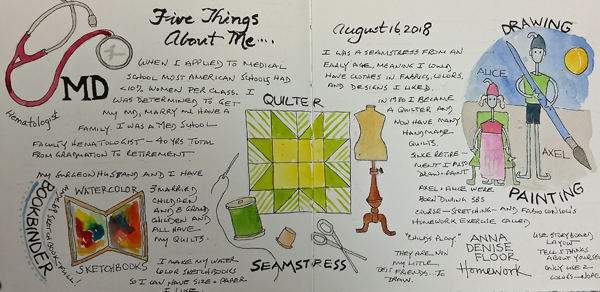 Five Things
About Me....
MD
Hematologist
WHEN I APPLIED TO MEDICAL
SCHOOL MOST AMERICAN SCHOOLS HAD
<10% WOMEN PER CLASS. I
WAS DETERMINED TO GET
MY MD, MARRY AND HAVE A
FAMILY. I WAS A MED SCHOOL
FACULTY HEMATOLOGIST - 40 YRS TOTAL
FROM GRADUATION TO RETIREMENT
MY SURGEON HUSBAND AND I HAVE
3 MARRIED
CHILDREN
AND 8 GRAND
CHILDREN AND
ALL HAVE
MY QUILTS.
BOOKBINDER
WATERCOLOR
SKETCHBOOKS
I MAKE MY WATER
COLOR SKETCHBOOKS
SO I CAN HAVE SIZE + PAPER
I LIKE.
QUILTER
SEAMSTRESS
August 16, 2018
I WAS A SEAMSTRESS FROM AN
EARLY AGE, MEANING I COULD
HAVE CLOTHES IN FABRICS, COLORS,
AND DESIGNS I LIKED.
IN 1980 I BECAME
A QUILTER AND
NOW HAVE MANY
HANDMADE
QUILTS.
SINCE RETIRE-
MENT I ALSO
DRAW + PAINT
AXEL + ALICE WERE
BORN DURING SBS
COURSE - STRETCHING - AND FABIO CONSOLI'S
HOMEWORK EXERCISE CALLED
"CHILDS PLAY."
THEY ARE NOW
MY LITTLE
BEST FRIENDS...TO
DRAW.
DRAWING
ALICE
AXEL
PAINTING
ANNA
DENISE
FLOOR
Homework
USE STORYBOARD
LAYOUT
TELL 5 THINGS
ABOUT YOURSELF
ONLY USE 2
COLORS - NOPE